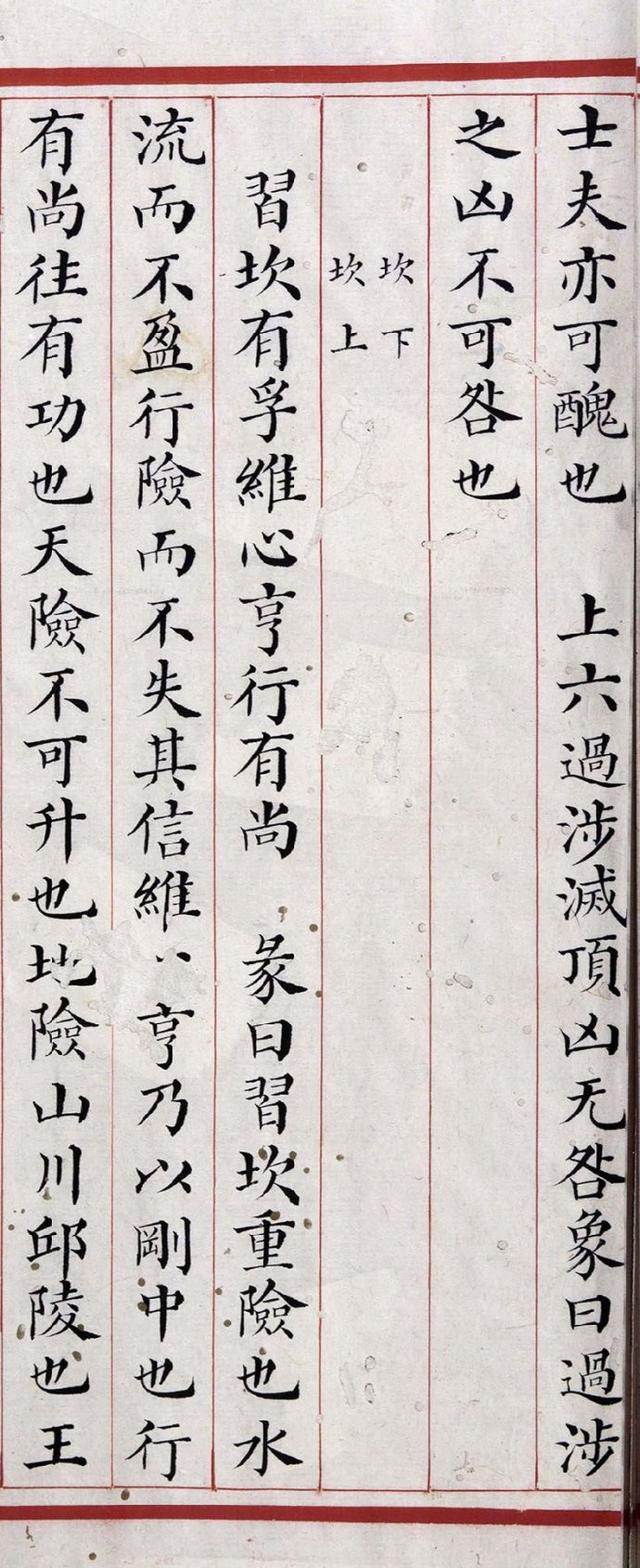 士夫亦可醜也　上六過涉滅頂凶无咎象曰過涉
之凶不可咎也
坎下
坎上
習坎有孚維心亨行有尚　彖曰習坎重險也水
流而不盈行險而不失其信維亨乃以剛中也行
有尚往有功也天險不可升也地險山川邱陵也王